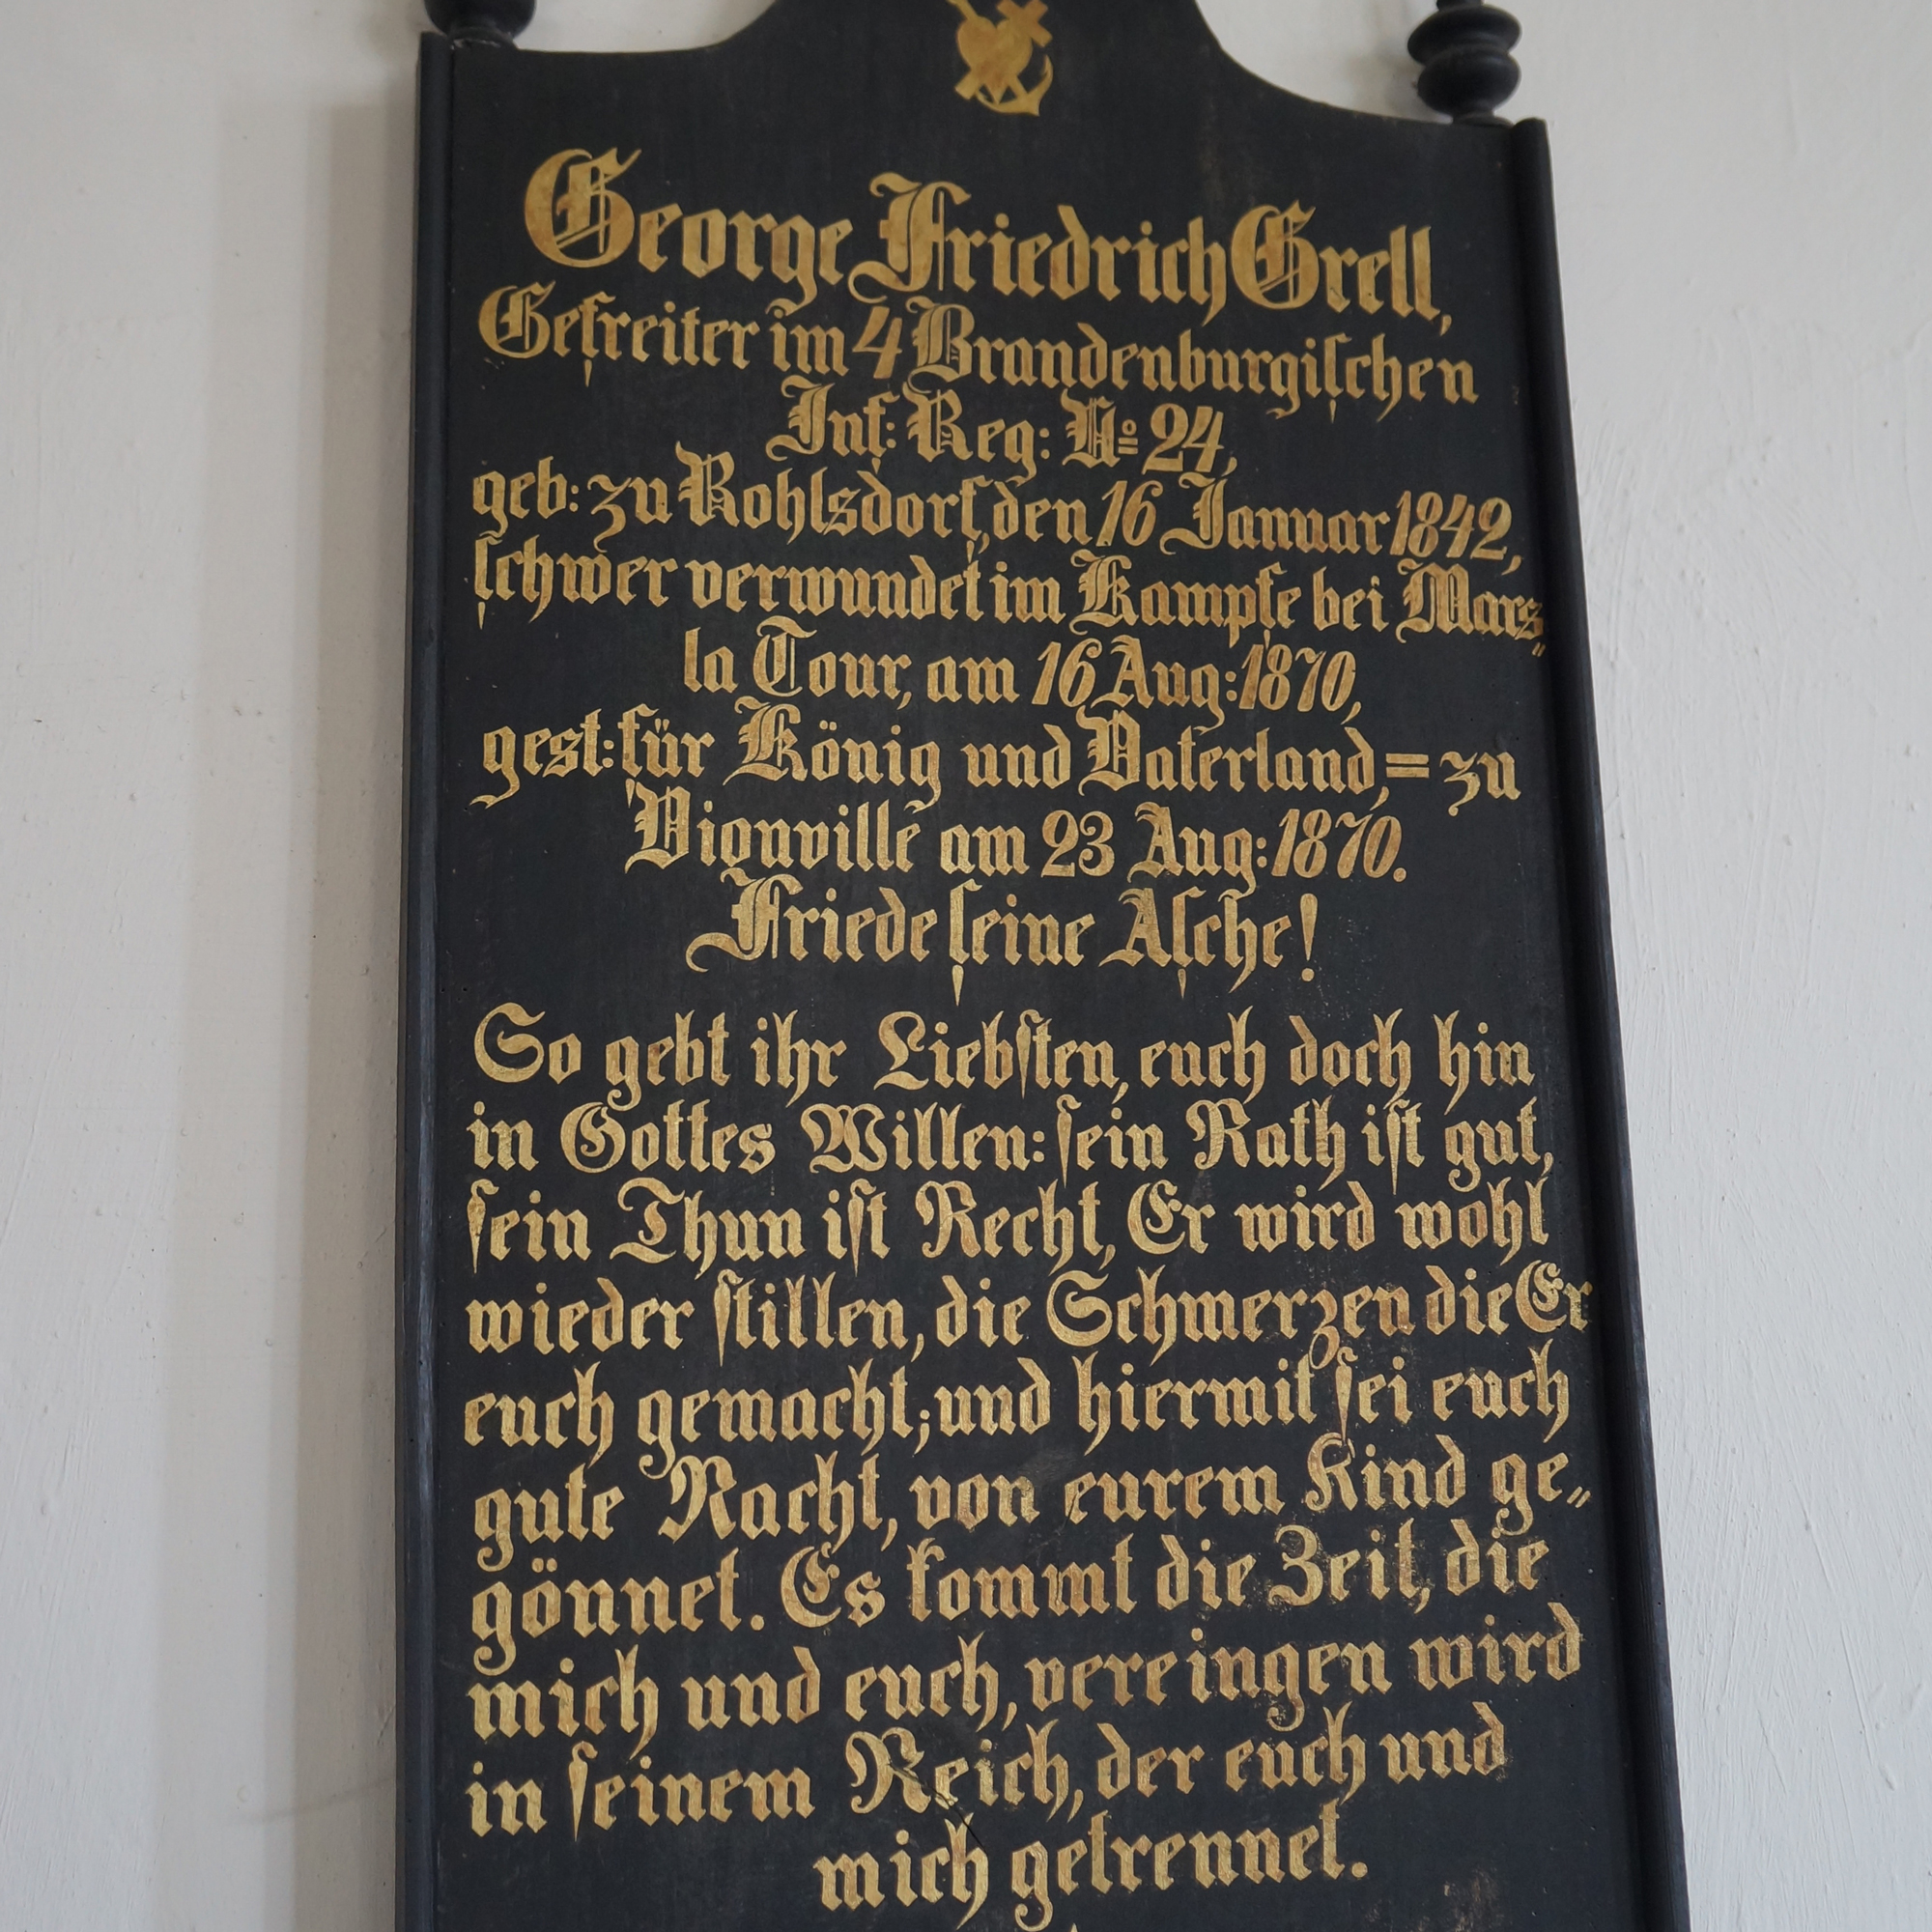 George Friedrich Grell,
Gefreiter im 4 Brandenburgiſchen
Inf: Reg: No 24,
geb: zu Rohlsdorf, den 16 Januar 1842,
ſchwer verwundet im Kampfe bei Mars„
la Tour, am 16 Aug: 1870,
gest: für König und Vaterland,= zu
Vionville am 23 Aug: 1870.
Friede ſeine Aſche!
So gebt ihr Liebſten, euch doch hin
in Gottes Willen: ſein Rath iſt gut,
ſein Thun iſt Recht, Er wird wohl
wieder ſtillen, die Schmerzen die Er
euch gemacht; und hiermit ſei euch
gute Nacht, von eurem Kind ge„
gönnet. Es kommt die Zeit, die
mich und euch, vereingen wird
in ſeinem Reich, der euch und
mich getrennet.